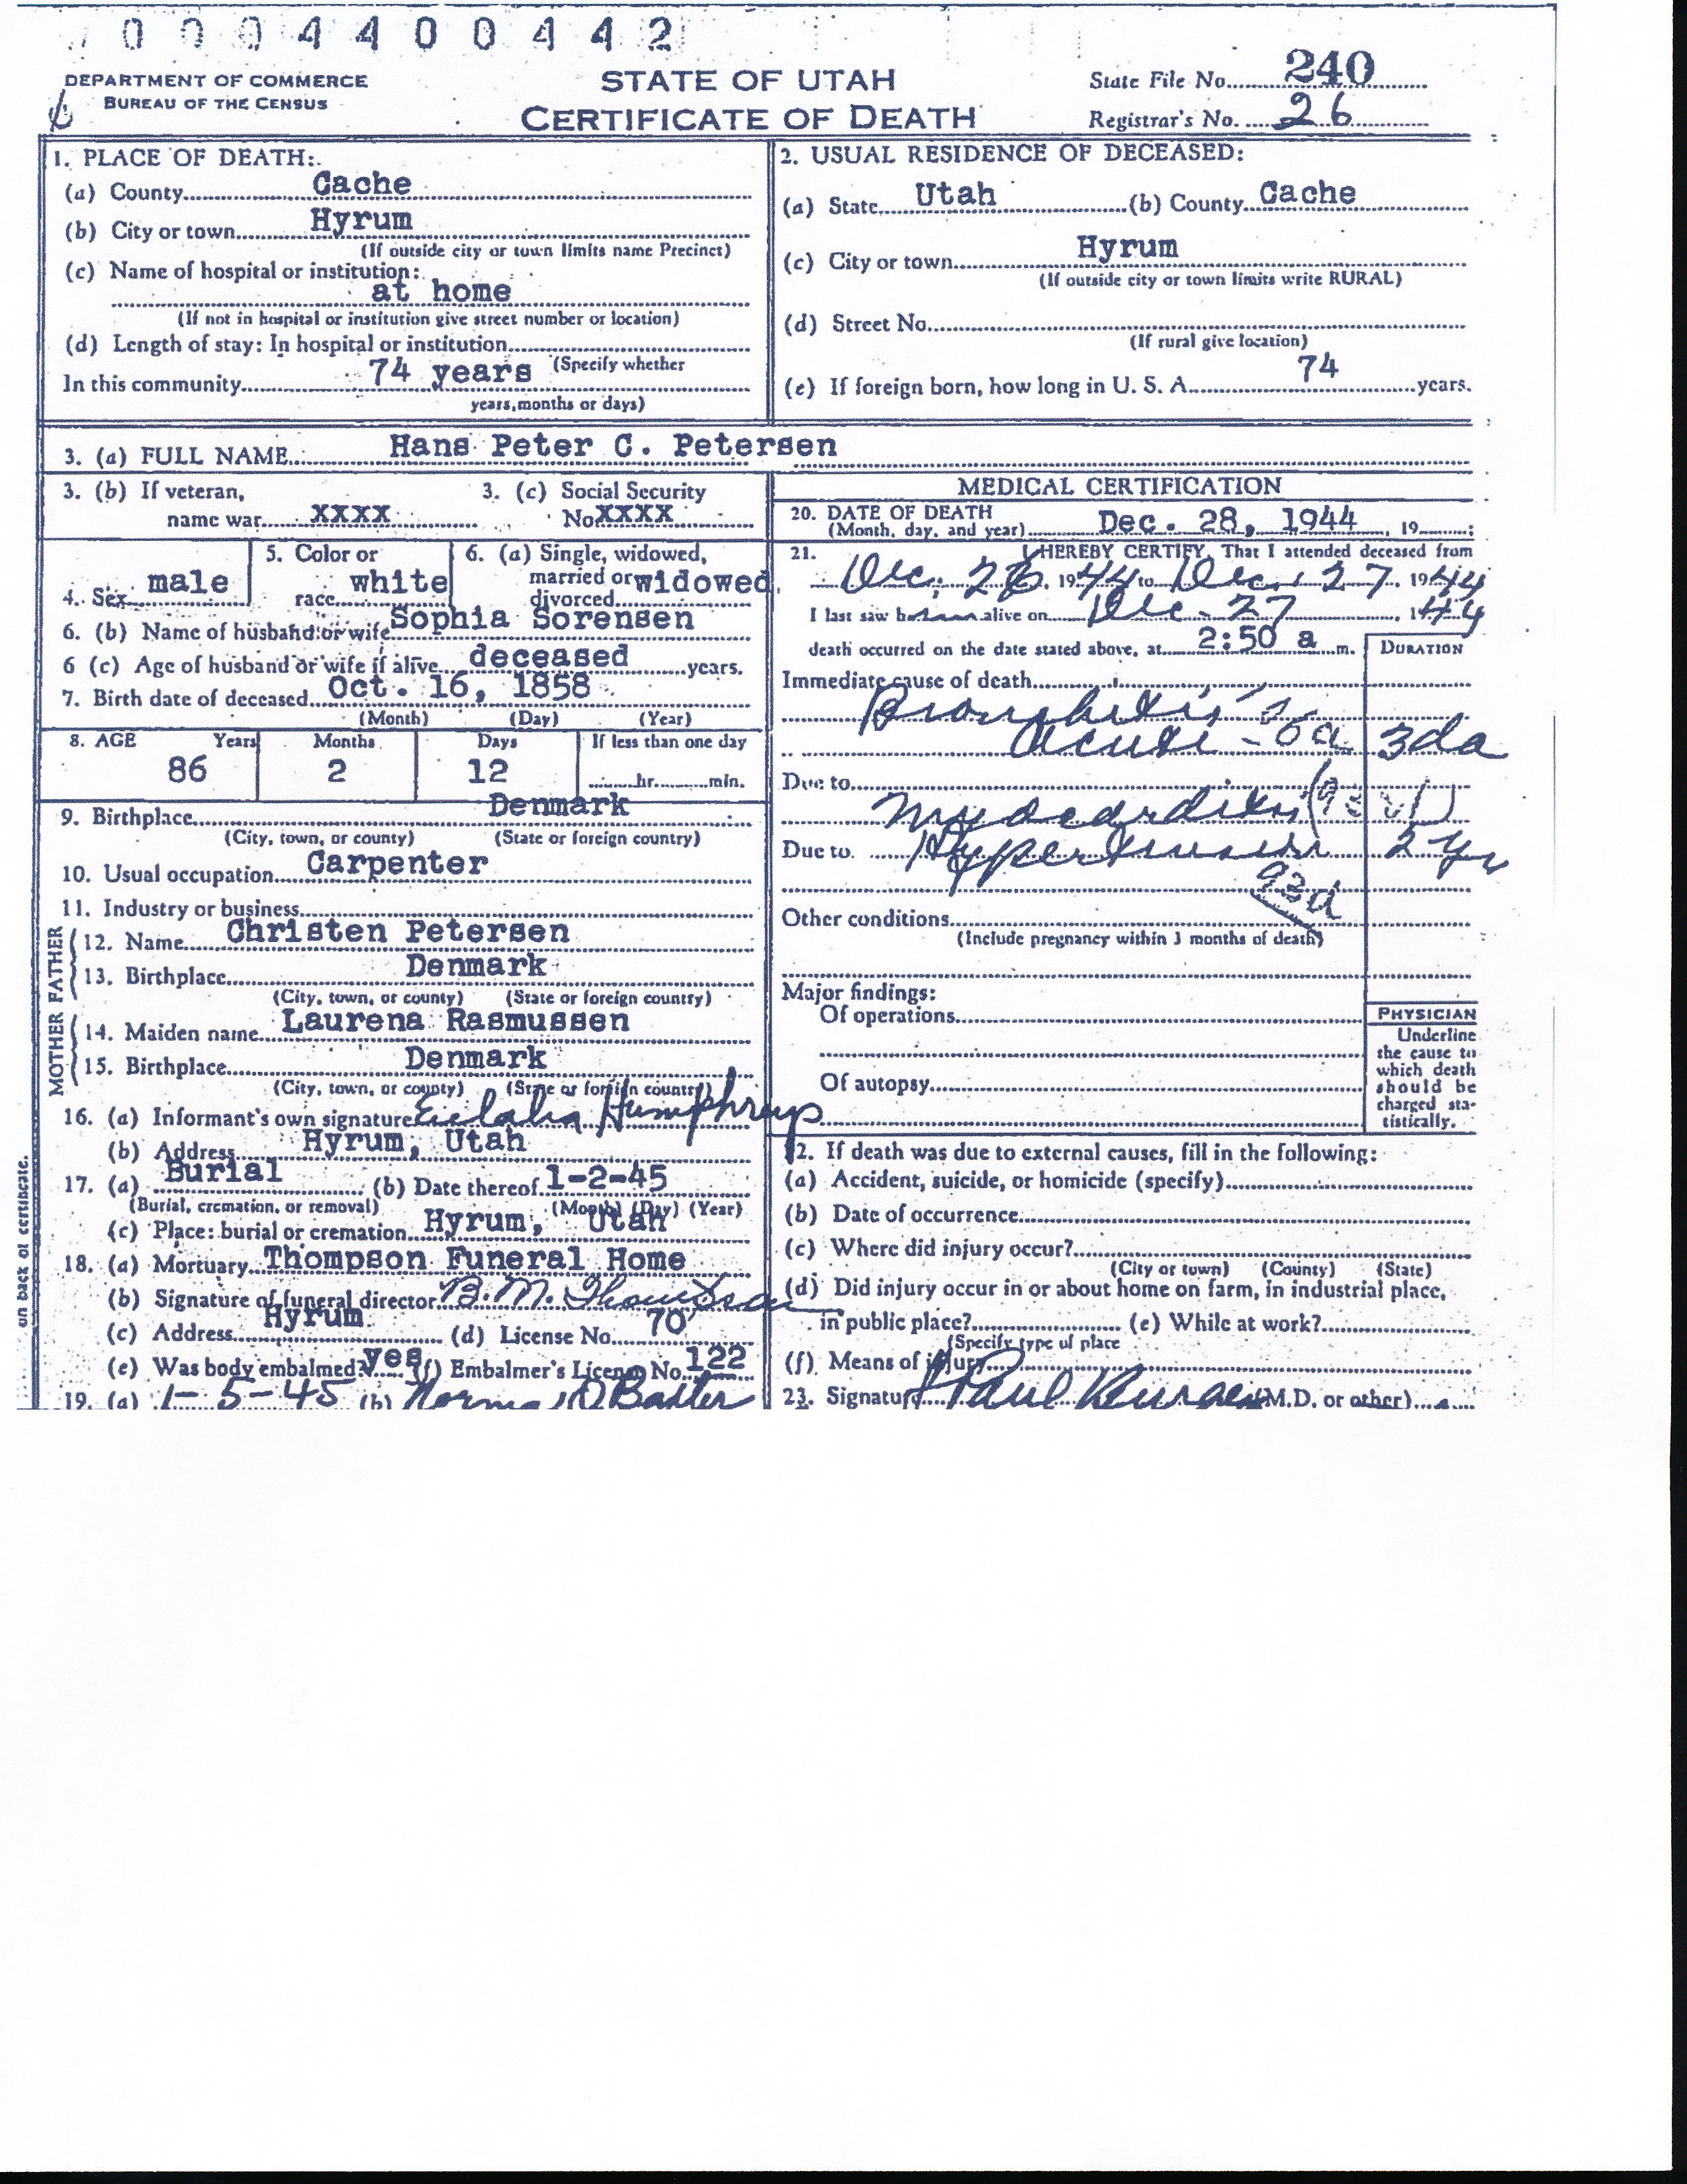 0 0 0 4 4 0 0 4 4 2
DEPARTMENT OF COMMERCE
BUREAU OF THE CENSUS
STATE OF UTAH
CERTIFICATE OF DEATH
State File No. 240
Registrar's No. 26
1. PLACE OF DEATH:
(a) County Cache
(b) City or town Hyrum
(If outside city or town limits name Precinct)
(c) Name of hospital or institution:
at home
(If not in hospital or institution give street number or location)
(d) Length of stay: In hospital or institution
(Specify whether
In this community 74 years
years, months or days)
2. USUAL RESIDENCE OF DECEASED:
(a) State Utah (b) County Cache
(c) City or town Hyrum
(If outside city or town limits write RURAL)
(d) Street No.
(If rural give location)
(e) If foreign born, how long in U. S. A. 74 years.
3. (a) FULL NAME Hans Peter C. Petersen
3. (b) If veteran,
name war XXXX
3. (c) Social Security
No XXXX
4. Sex male
5. Color or
race white
6. (a) Single, widowed,
married or
divorced widowed
6. (b) Name of husband or wife Sophia Sorensen
6 (c) Age of husband or wife if alive deceased years.
7. Birth date of deceased Oct. 16, 1858
(Month) (Day) (Year)
8. AGE Years Months Days If less than one day
86 2 12 hr. min.
9. Birthplace Denmark
(City, town, or county) (State or foreign country)
10. Usual occupation Carpenter
11. Industry or business
FATHER
12. Name Christen Petersen
13. Birthplace Denmark
(City, town, or county) (State or foreign country)
MOTHER
14. Maiden name Laurena Rasmussen
15. Birthplace Denmark
(City, town, or county) (State or foreign country)
16. (a) Informant's own signature Eulalia Humphreys
(b) Address Hyrum, Utah
17. (a) Burial (b) Date thereof 1-2-45
(Burial, cremation, or removal) (Month) (Day) (Year)
(c) Place: burial or cremation Hyrum, Utah
18. (a) Mortuary Thompson Funeral Home
(b) Signature of funeral director B. M. Thompson
(c) Address Hyrum (d) License No. 70
(e) Was body embalmed? yes (f) Embalmer's License No. 122
19. (a) 1-5-45 (b)
on back of certificate.
MEDICAL CERTIFICATION
20. DATE OF DEATH
(Month, day, and year) Dec. 28, 1944, 19 ;
21. I HEREBY CERTIFY, That I attended deceased from
Dec. 26, 1944 to Dec. 27, 1944
I last saw him alive on Dec. 27, 1944
death occurred on the date stated above, at 2:50 a m.
DURATION
Immediate cause of death
Bronchitis
acute 3 da
Due to
Myocarditis
Due to Hypertension 2 yr
93d
Other conditions
(Include pregnancy within 3 months of death)
Major findings:
Of operations
Of autopsy
PHYSICIAN
Underline
the cause to
which death
should be
charged sta-
tistically.
22. If death was due to external causes, fill in the following:
(a) Accident, suicide, or homicide (specify)
(b) Date of occurrence
(c) Where did injury occur?
(City or town) (County) (State)
(d) Did injury occur in or about home on farm, in industrial place,
in public place? (e) While at work?
(Specify type of place
(f) Means of injury
23. Signature Paul (M.D. or other)